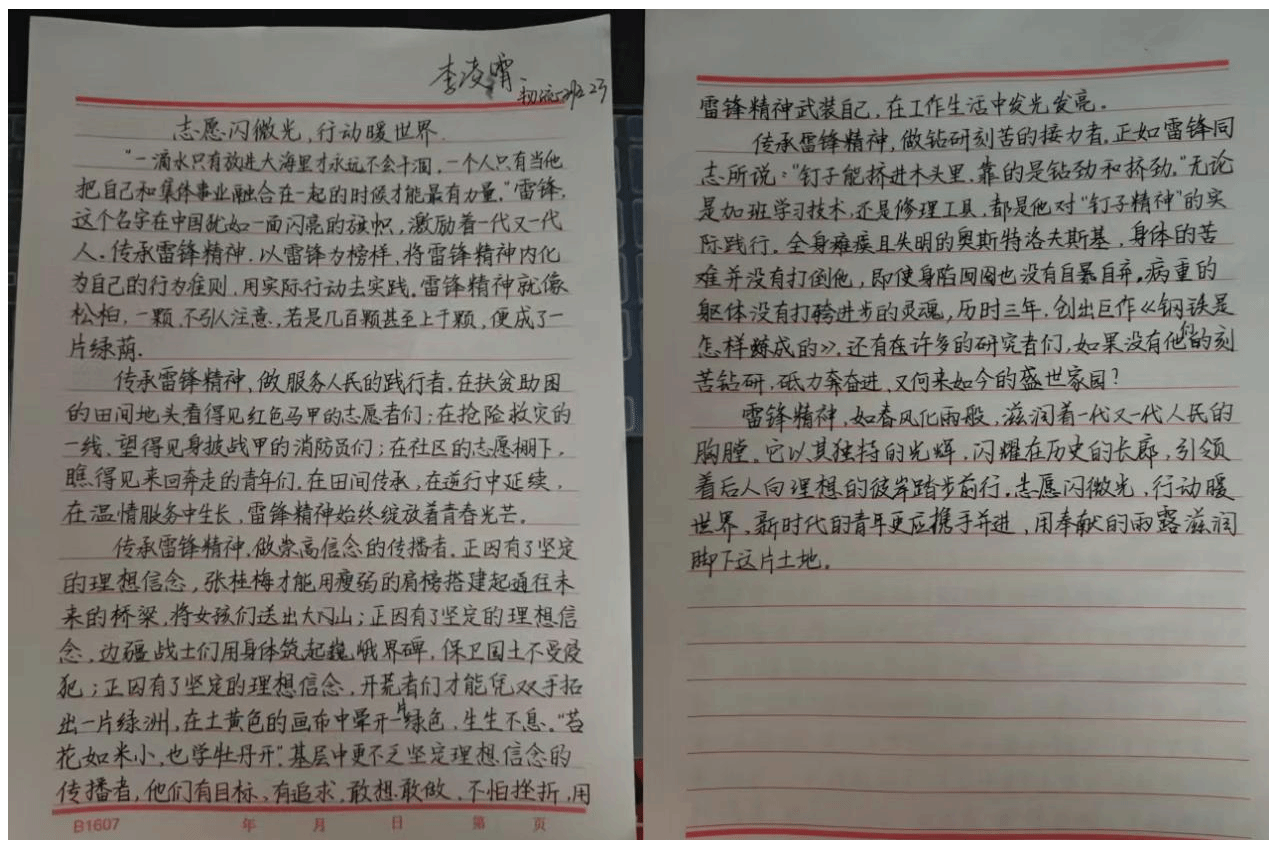 李凌霄
志愿闪微光,行动暖世界.
“一滴水只有放进大海里才永远不会干涸,一个人只有当他
把自己和集体事业融合在一起的时候才能最有力量。”雷锋,
这个名字在中国犹如一面闪亮的旗帜,激励着一代又一代
人.传承雷锋精神.以雷锋为榜样,将雷锋精神内化
为自己的行为准则,用实际行动去实践。雷锋精神就像
松柏,一颗,不引人注意,若是几百颗甚至上千颗,便成了一
片绿荫.
传承雷锋精神,做服务人民的践行者.在扶贫助困
的田间地头看得见红色马甲的志愿者们;在抢险救灾的
一线,望得见身披战甲的消防员们;在社区的志愿棚下,
瞧得见来回奔走的青年们.在田间传承,在逆行中延续,
在温情服务中生长,雷锋精神始终绽放着青春光芒。
传承雷锋精神.做崇高信念的传播者.正因有了坚定
的理想信念,张桂梅才能用瘦弱的肩榜搭建起通往未
来的桥梁,将女孩们送出大凉山;正因有了坚定的理想信
念,边疆战士们用身体筑起巍峨界碑,保卫国土不受侵
犯;正因有了坚定的理想信念,开荒者们才能凭双手拓
出一片绿洲,在土黄色的画布中晕开一片绿色,生生不息.“苔
花如米小,也学牡丹开”.基层中更不乏坚定理想信念的
传播者,他们有目标、有追求,敢想敢做、不怕挫折,用
B1607 年 月 日 第 页
雷锋精神武装自己,在工作生活中发光发亮.
传承雷锋精神,做钻研刻苦的接力者.正如雷锋同
志所说:“钉子能挤进木头里,靠的是钻劲和挤劲.”无论
是加班学习技术,还是修理工具,都是他对“钉子精神”的实
际践行.全身瘫痪且失明的奥斯特洛夫斯基,身体的苦
难并没有打倒他,即使身陷囹圄也没有自暴自弃.病重的
躯体没有打骑进步的灵魂,历时三年,创出巨作《钢铁是
怎样炼成的》.还有在许多的研究者们,如果没有他们的刻
苦钻研,砥力奔奋进,又何来如今的盛世家园?
雷锋精神,如春风化雨般,滋润着一代又一代人民的
胸膛。它以其独特的光辉,闪耀在历史的长廊,引领
着后人向理想的彼岸踏步前行.志愿闪微光,行动暖
世界,新时代的青年更应携手并进,用奉献的雨露滋润
脚下这片土地。